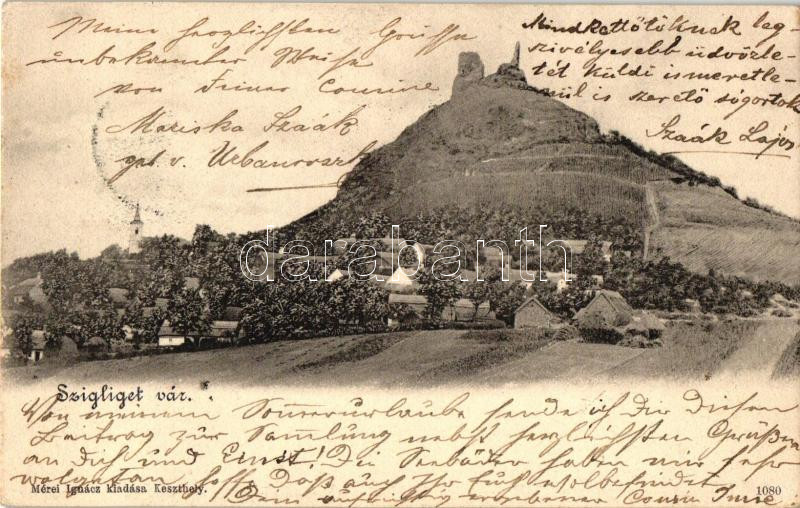 Meine herzlichsten Grüsse
unbekannter Weise
von Deiner Cousine
Mariska Szaák
geb v. Urbanovszky
Mindkettőtöknek leg-
szivélyesebb üdvözle-
tét küldi ismeretle-
nül is szerető sógortok
Szaák Lajos
darabanth
Szigliget vár.
Von meinem Sommerurlaube sende ich Dir diesen
Beitrag zur Samlung nebst herzlichsten Grüßen
an Dich und Ernst! Die Seebäder haben mir sehr
Daß auch Ihr Euch wohlbefindet
Dein aufrichtig ergebener Cousin Imre
Mérei Ignácz kiadása Keszthely.
1080